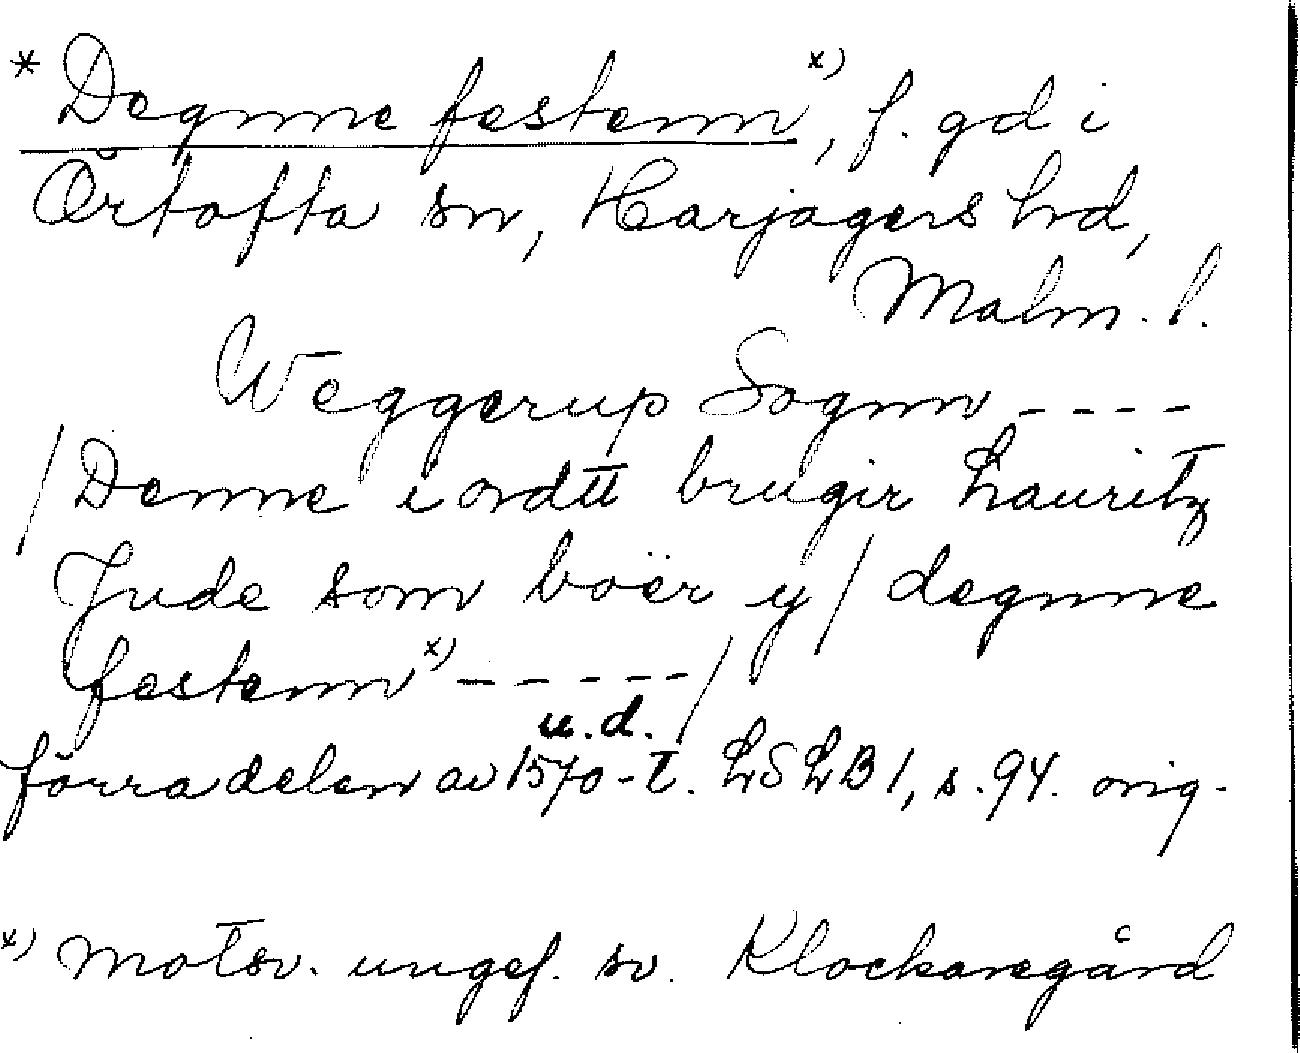 * Degnne festenn x), f. gd i
Örtofta sn, Harjagers hd,
Malm. l.
Weggerup Sognn ----
/ Denne iordtt brugir Lauritz
Jude som boër y / degnne
festenn x) ----- /
u.d.
förra delen av 1570-t. LSLB 1, s. 94. orig.
x) motsv. ungef. sv. Klockaregård